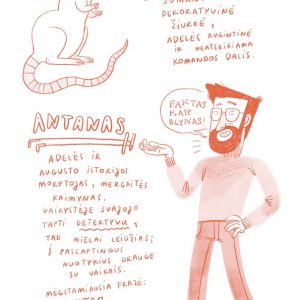 DEKORATYVINĖ
ŽIURKĖ,
ADELĖS AUGINTINĖ
IR NEATSKIRIAMA
KOMANDOS DALIS.
FAKTAS
KAIP
BLYNAS!
ANTANAS
ADELĖS IR
AUGUSTO ISTORIJOS
MOKYTOJAS, MERGAITĖS
KAIMYNAS.
VAIKYSTĖJE SVAJOJO
TAPTI DETEKTYVU,
TAD MIELAI LEIDŽIASI
Į PASLAPTINGUS
NUOTYKIUS DRAUGE
SU VAIKAIS.
MĖGSTAMIAUSIA FRAZĖ: